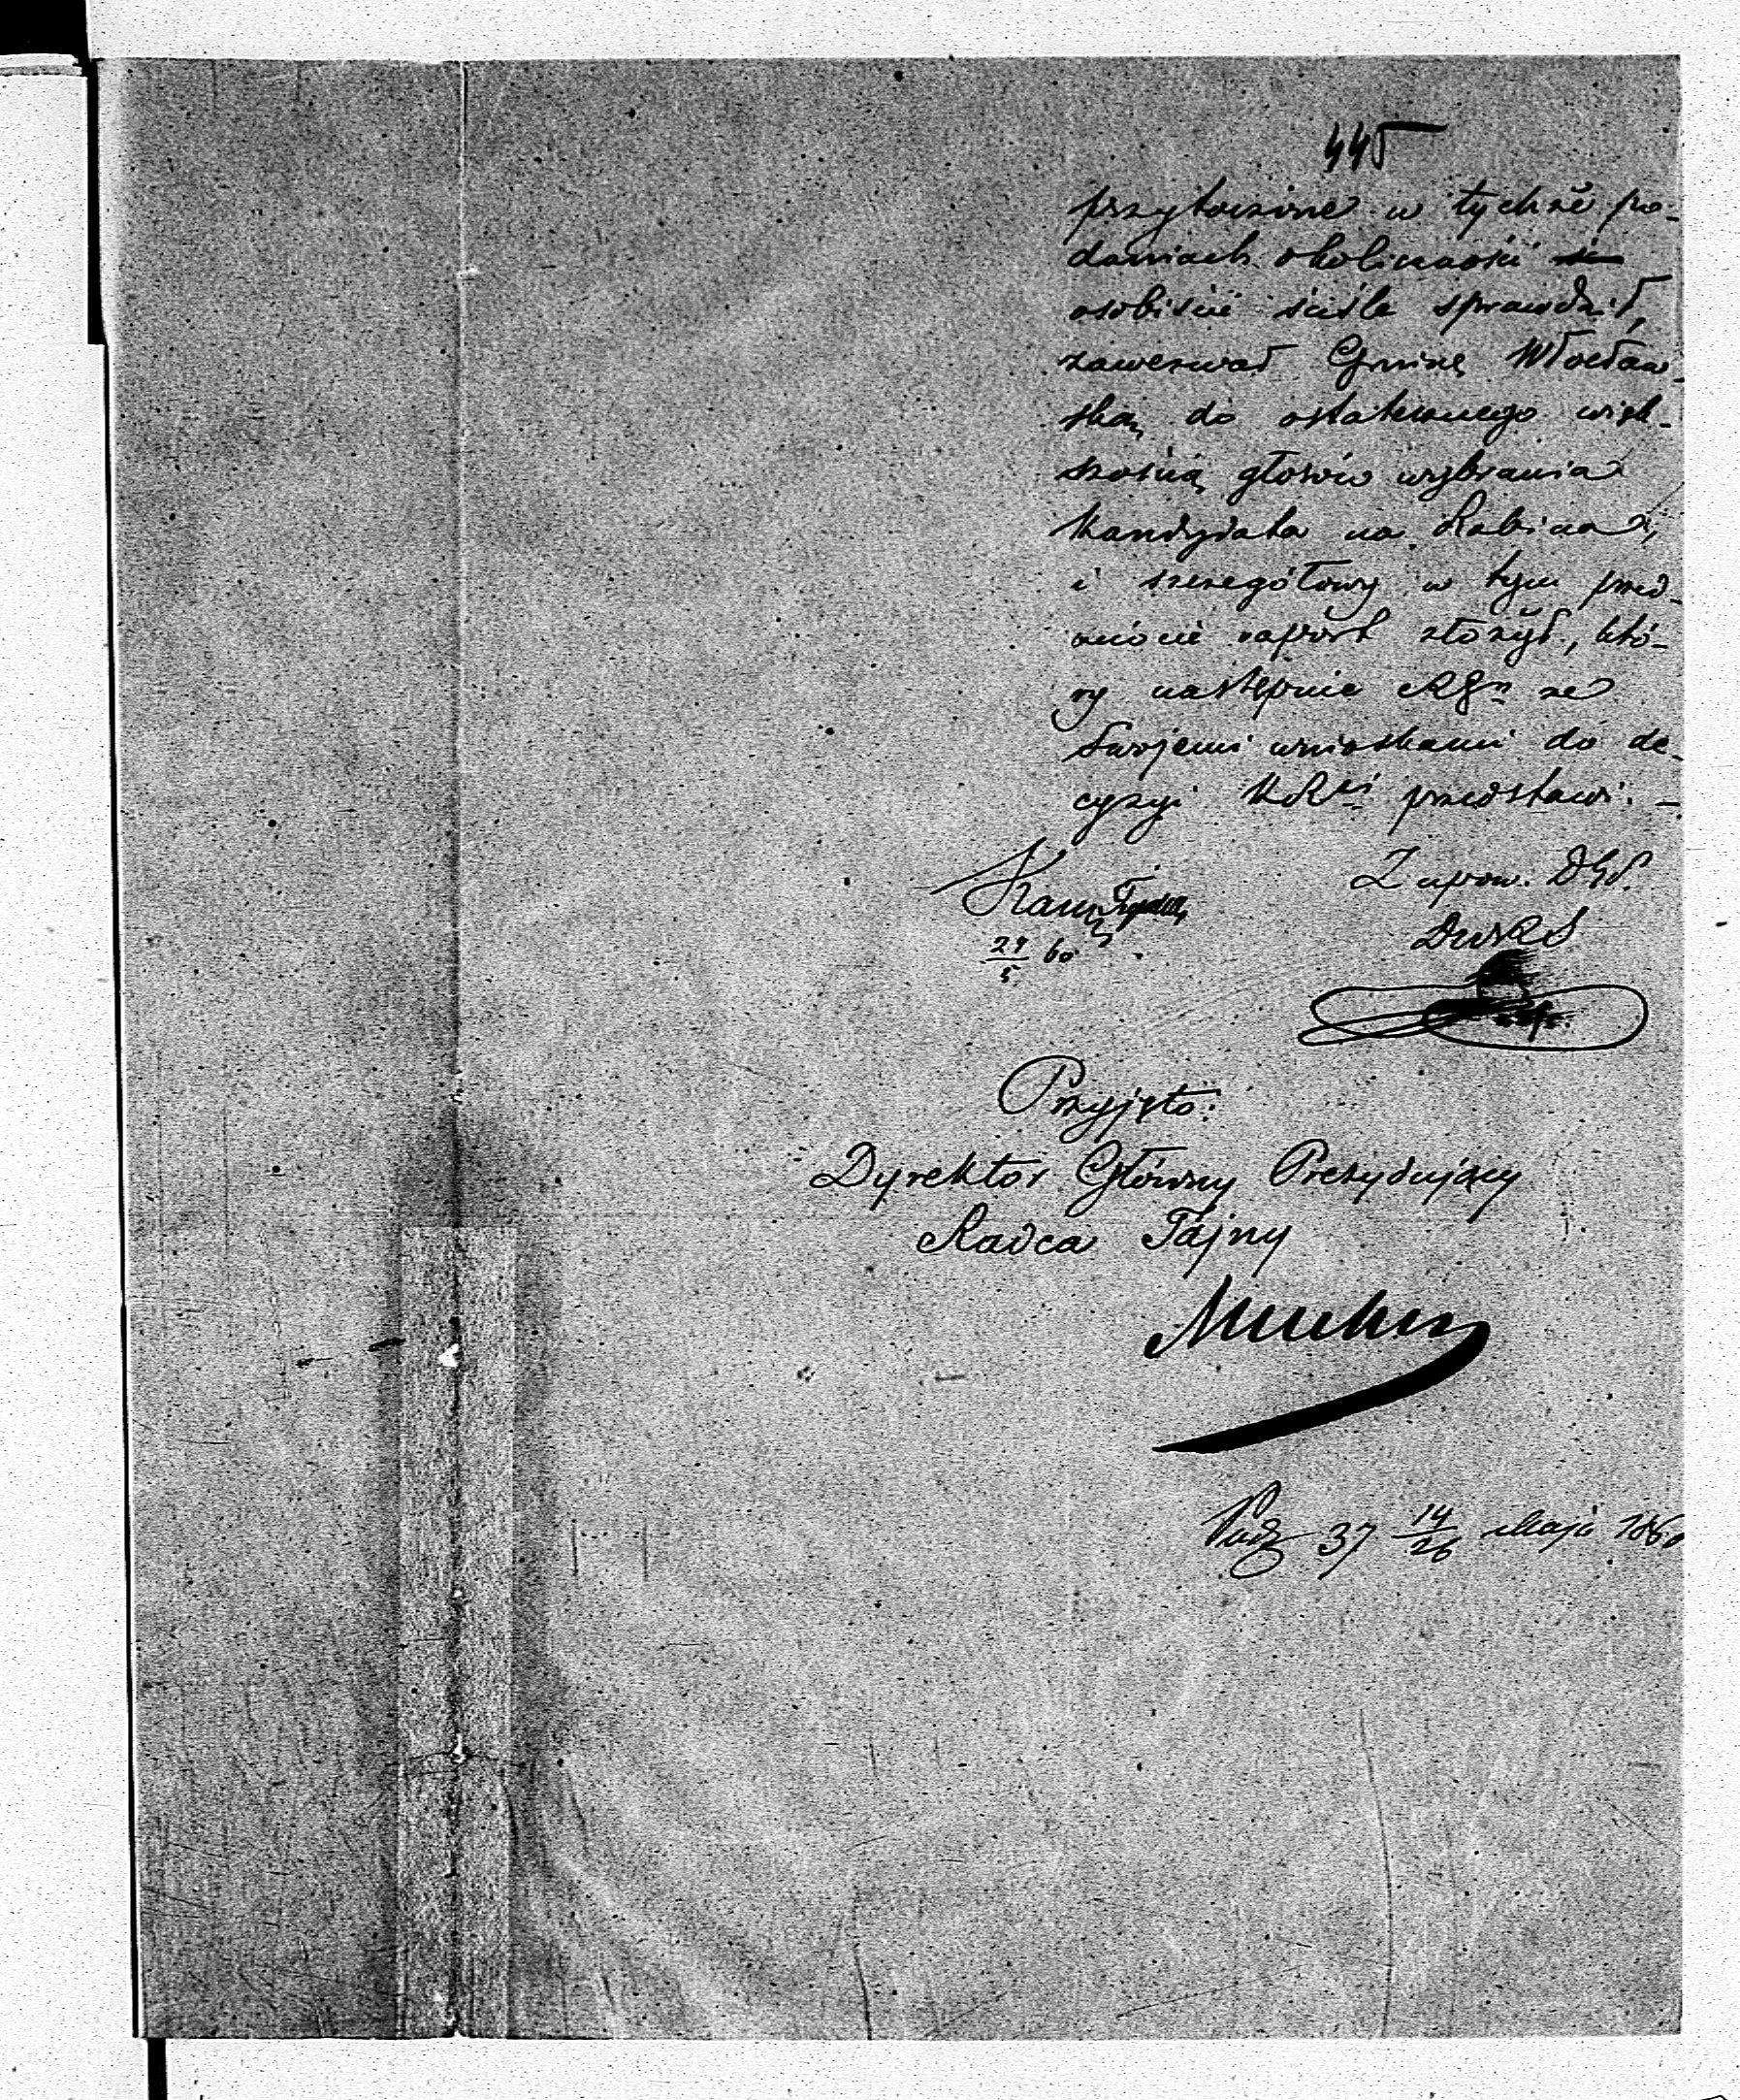 445
przytoczone w tychże po-
daniach okoliczności
osobiście ściśle sprawdził,
zawezwał Gminę Włocław-
ską do ostatecznego więk-
szością głosów wybrania
Kandydata na Rabina,
i szczegółowy w tym przed-
miocie raport złożył, któ-
ry następnie RGn ze
Swojemi wnioskami do de-
cyzyi KRki przedstawi. —
Z upow. DGP.
29/5 60
Przyjęto:
Dyrektor Główny Prezydujący
Radca Tajny
Muchan
37 14/26 Maja 1860